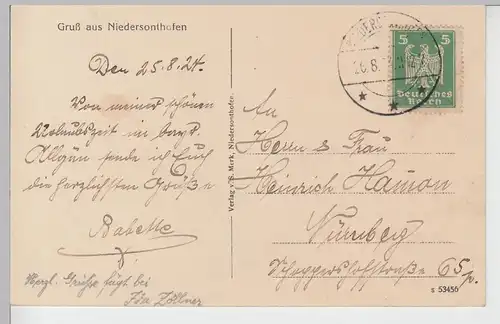 Gruß aus Niedersonthofen
Den 25.8.24.
Von meiner schönen
Urlaubszeit im bayr.
Allgäu sende ich Euch
die herzlichsten Grüße
Babette
Herzl. Grüße fügt bei
Ida Zöllner
Verlag v. S. Merk, Niedersonthofen.
5 5
Deutsches
Reich
An
Herrn & Frau
Heinrich Hamon
Nürnberg
65
s 53456